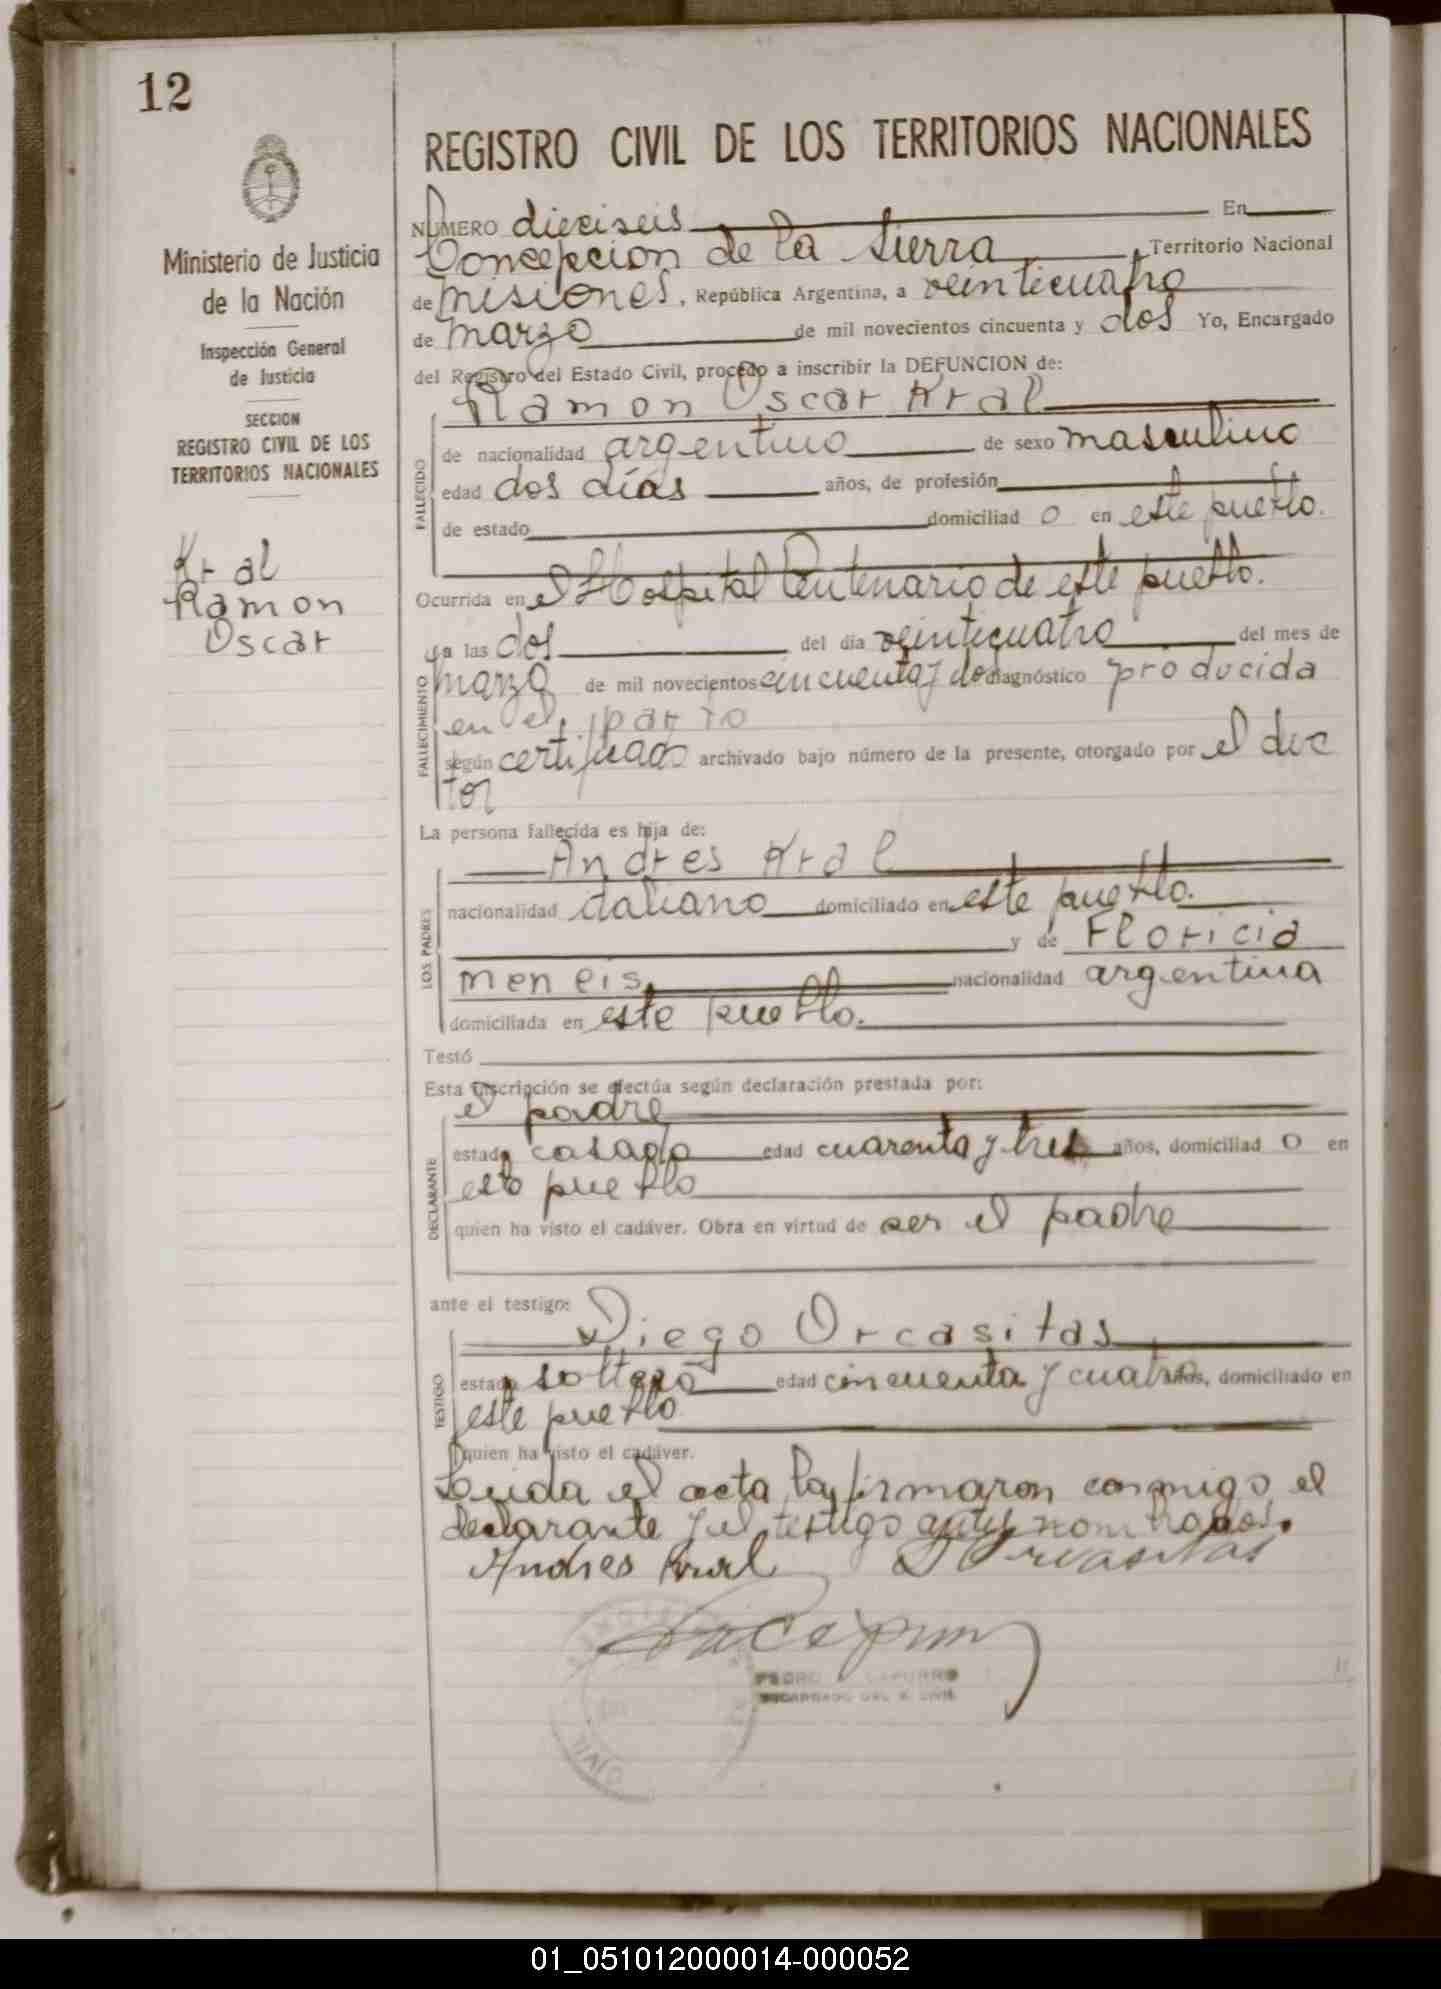 12
Ministerio de Justicia
de la Nación
Inspección General
de Justicia
SECCION
REGISTRO CIVIL DE LOS
TERRITORIOS NACIONALES
Kral
Ramon
Oscar
REGISTRO CIVIL DE LOS TERRITORIOS NACIONALES
NÚMERO dieciseis En
Concepcion de la Sierra, Territorio Nacional
de misiones, República Argentina, a veinticuatro
de marzo de mil novecientos cincuenta y dos Yo, Encargado
del Registro del Estado Civil, procedo a inscribir la DEFUNCION de:
Ramon Oscar Kral
FALLECIDO
de nacionalidad argentino de sexo masculino
edad dos días años, de profesión
de estado domiciliad o en este pueblo.
Ocurrida en el Hospital Centenario de este pueblo.
FALLECIMIENTO
y a las dos del día veinticuatro del mes de
marzo de mil novecientos cincuenta y dos diagnóstico producida
en el parto
según certificado archivado bajo número de la presente, otorgado por el doc
tor
La persona fallecida es hija de:
LOS PADRES
Andres Kral
nacionalidad italiano domiciliado en este pueblo.
y de Floricia
meneis, nacionalidad argentina
domiciliada en este pueblo.
Testó
Esta inscripción se efectúa según declaración prestada por:
DECLARANTE
el padre
estado casado edad cuarenta y tres años, domiciliad o en
este pueblo
quien ha visto el cadáver. Obra en virtud de ser el padre
ante el testigo:
TESTIGO
Diego Orcasitas
estado soltero edad cincuenta y cuatro años, domiciliado en
este pueblo
quien ha visto el cadáver.
Leida el acta la firmaron conmigo el
declarante y el testigo antes nombrados.
Andres Kral D Orcasitas
PEDRO CAPURRO
ENCARGADO DEL R. CIVIL
CIVIL
01_051012000014-000052